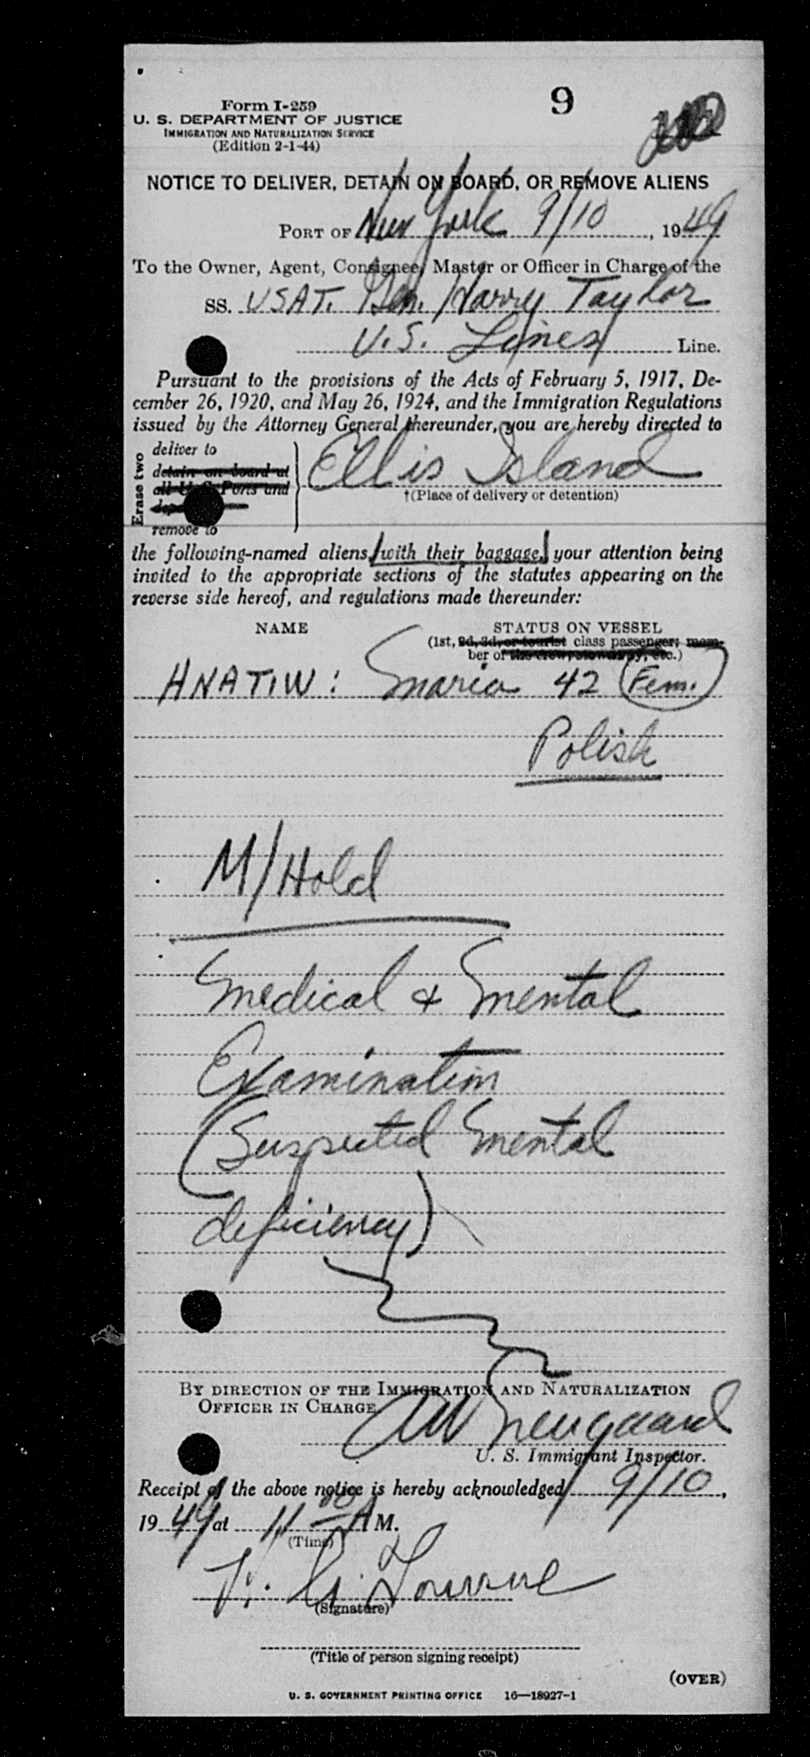 Form I-259
9
U. S. DEPARTMENT OF JUSTICE
IMMIGRATION AND NATURALIZATION SERVICE
(Edition 2-1-44)
NOTICE TO DELIVER, DETAIN ON BOARD, OR REMOVE ALIENS
PORT OF New York 9/10, 1949
To the Owner, Agent, Consignee, Master or Officer in Charge of the
SS. USAT. Gen. Harry Taylor
U.S. Lines Line.
Pursuant to the provisions of the Acts of February 5, 1917, De-
cember 26, 1920, and May 26, 1924, and the Immigration Regulations
issued by the Attorney General thereunder, you are hereby directed to
Erase two
deliver to
detain on board at
all U. S. Ports and
remove to
Ellis Island
†(Place of delivery or detention)
the following-named aliens, with their baggage, your attention being
invited to the appropriate sections of the statutes appearing on the
reverse side hereof, and regulations made thereunder:
NAME STATUS ON VESSEL
(1st, 2d, 3d, or tourist class passenger; mem-
ber of the crew, stowaway, etc.)
HNATIW: Maria 42 Fem.
Polish
M/Hold
Medical & Mental
Examination
(Suspected Mental
deficiency)
BY DIRECTION OF THE IMMIGRATION AND NATURALIZATION
OFFICER IN CHARGE
U. S. Immigrant Inspector.
Receipt of the above notice is hereby acknowledged 9/10,
1949 at 11 00 A M.
(Time)
(Signature)
(Title of person signing receipt)
(OVER)
U. S. GOVERNMENT PRINTING OFFICE 16—18927-1